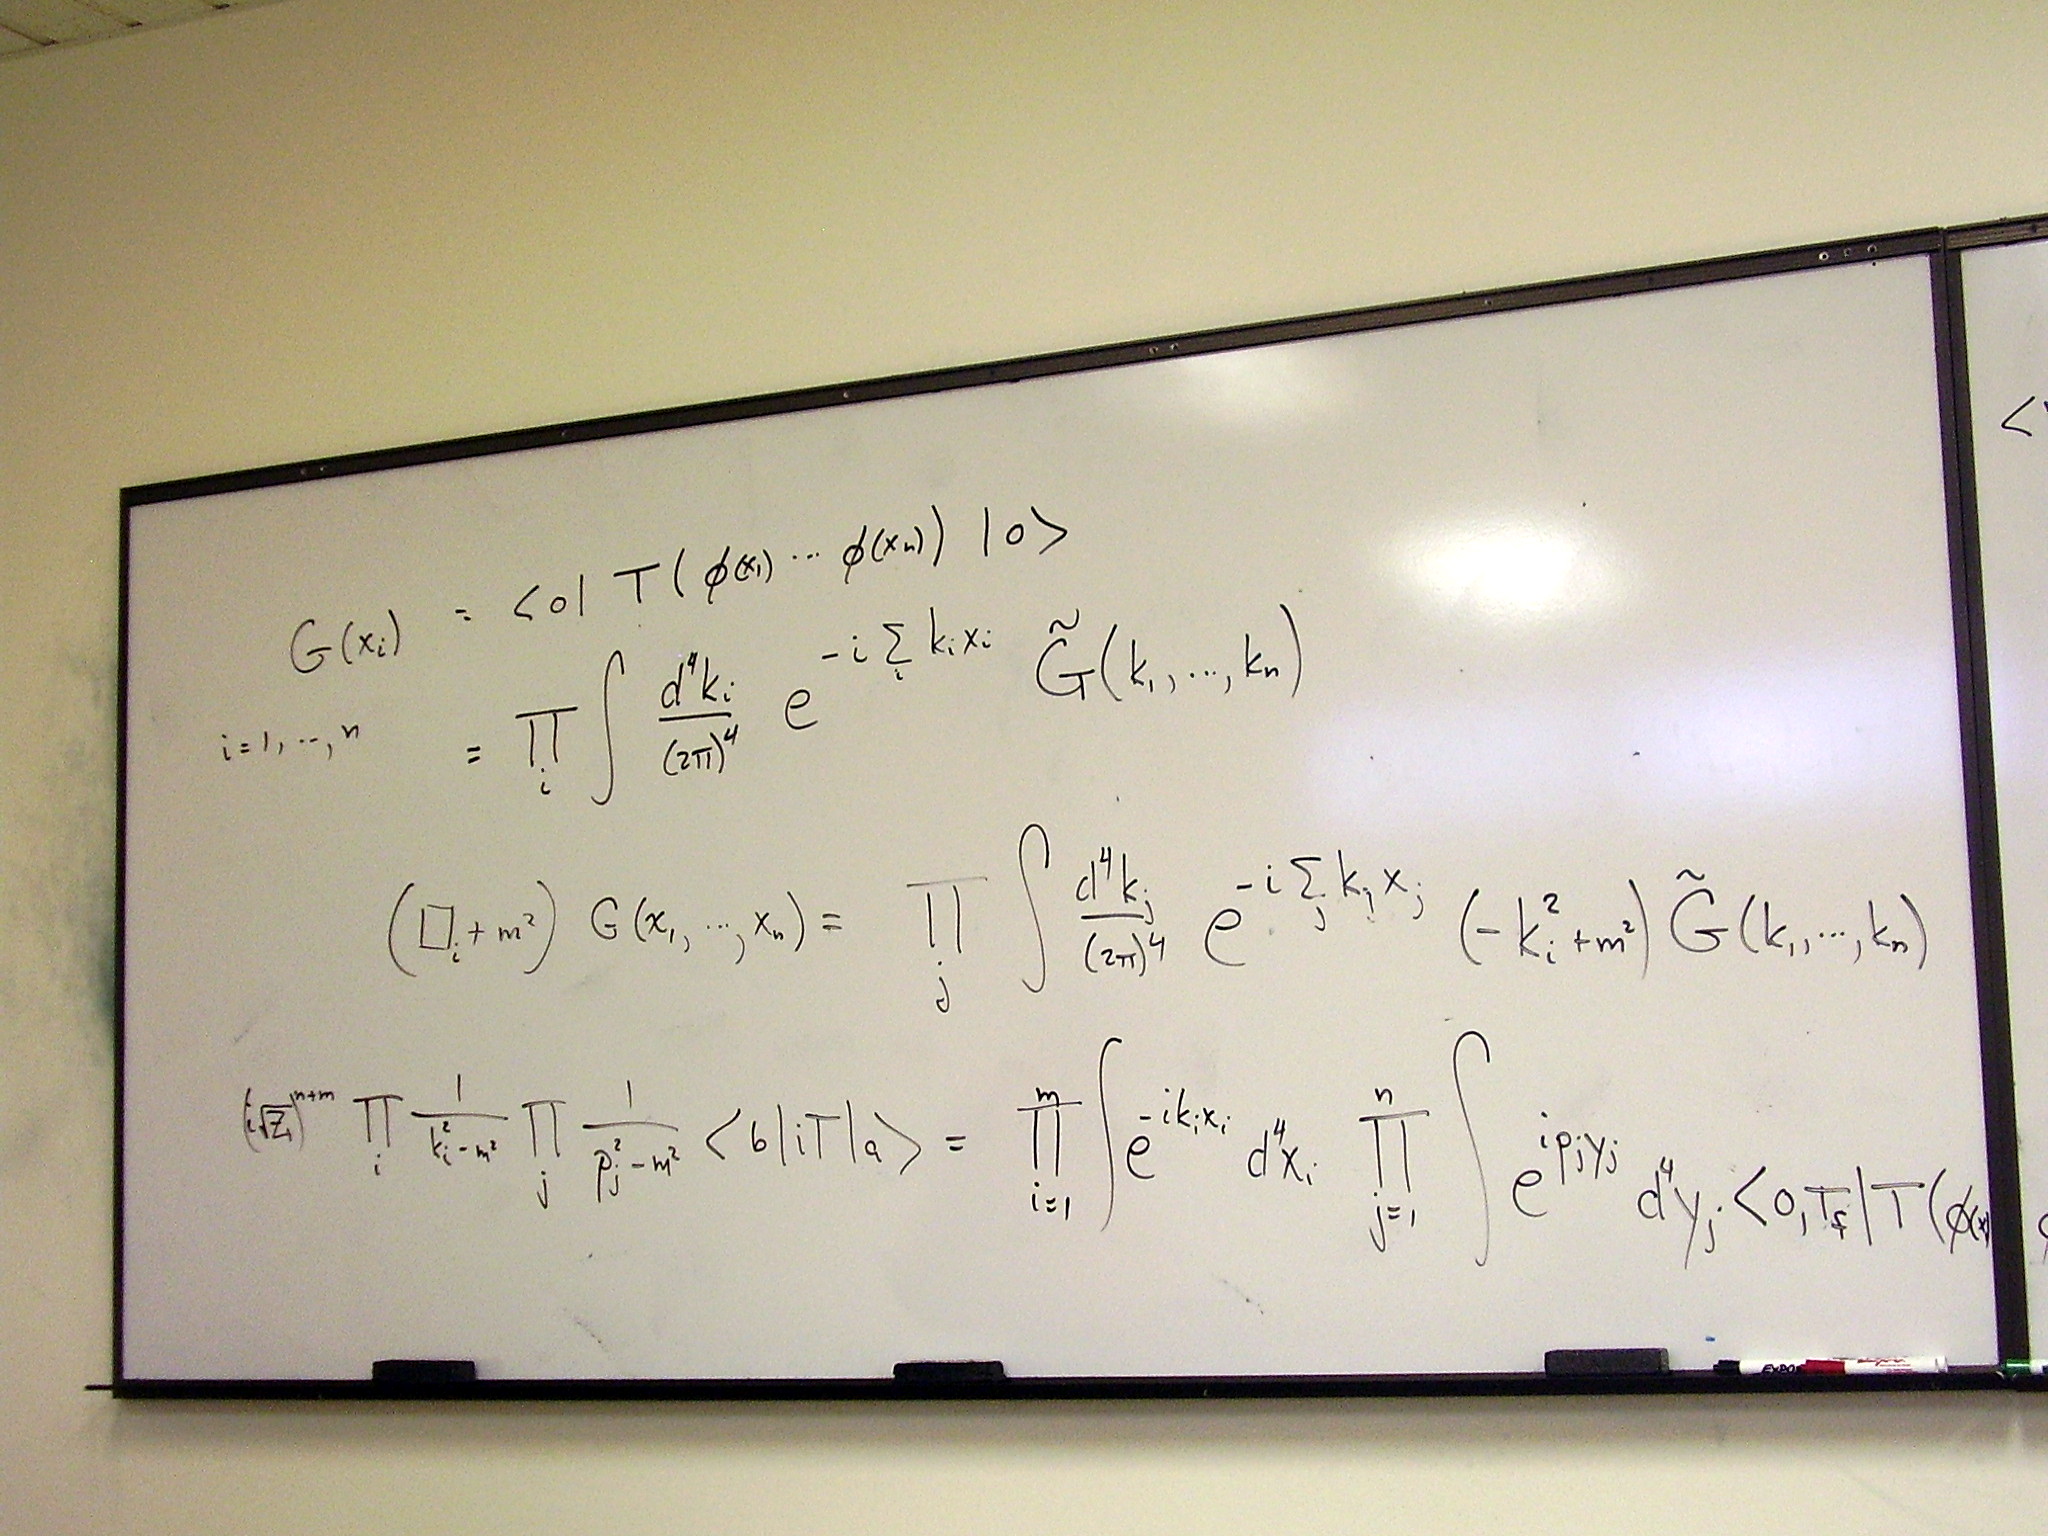 G(xᵢ) = <0| T( ϕ(x₁) ... ϕ(xₙ) ) |0>
i = 1, ..., n = ∏ᵢ ∫ d⁴kᵢ/(2π)⁴ e^(-i Σᵢ kᵢxᵢ) G̃(k₁, ..., kₙ)
(□ᵢ + m²) G(x₁, ..., xₙ) = ∏ⱼ ∫ d⁴kⱼ/(2π)⁴ e^(-i Σⱼ kⱼxⱼ) (-kᵢ² + m²) G̃(k₁, ..., kₙ)
∏ᵢ 1/(kᵢ² - m²) ∏ⱼ 1/(pⱼ² - m²) <b|iT|a> = ∏ᵢ₌₁ᵐ ∫ e^(-ikᵢxᵢ) d⁴xᵢ ∏ⱼ₌₁ⁿ ∫ e^(ipⱼyⱼ) d⁴yⱼ <0, T_f | T(ϕ(x
EXPO